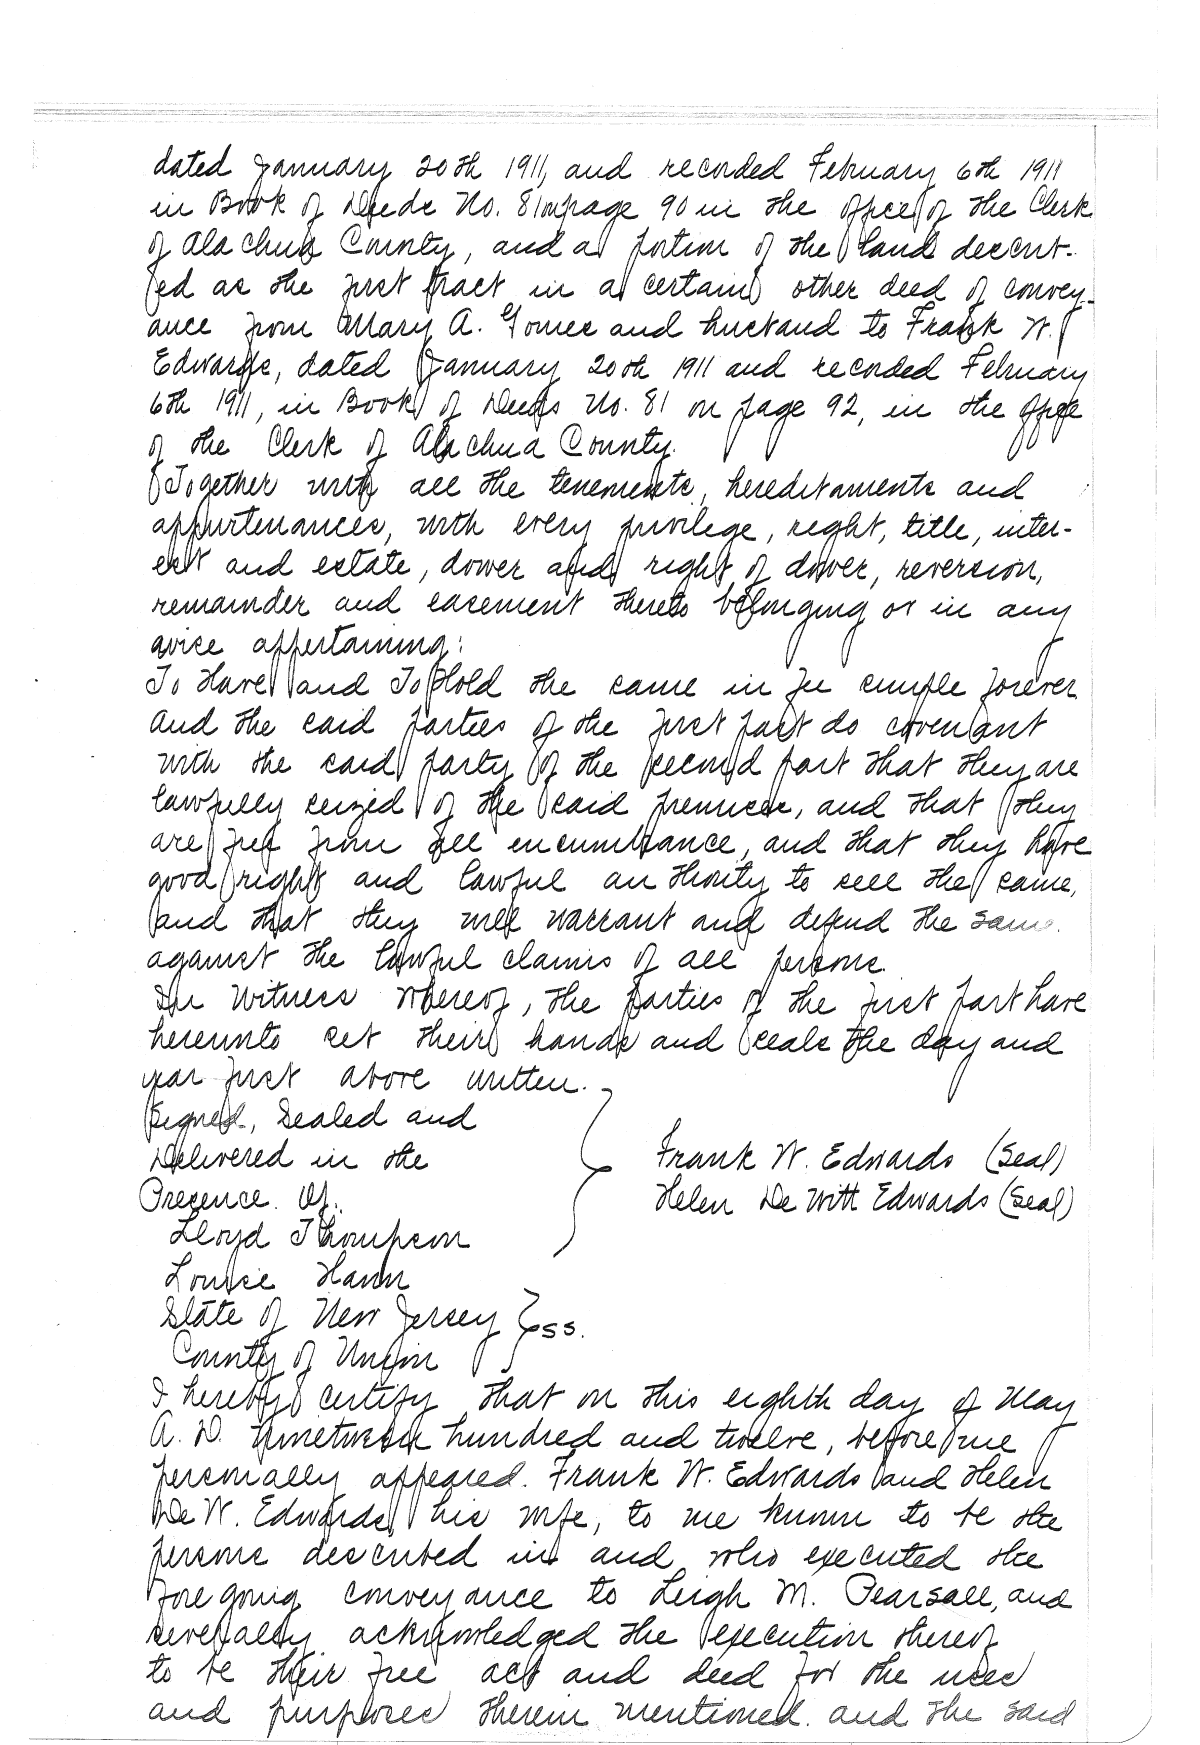 dated January 20th 1911, and recorded February 6th 1911
in Book of Deeds No. 81 on page 90 in the office of the Clerk
of Alachua County, and a portion of the land describ-
ed as the first tract in a certain other deed of convey-
ance from Mary A. Gomes and husband to Frank W.
Edwards, dated January 20th 1911 and recorded February
6th 1911, in Book of Deeds No. 81 on page 92, in the office
of the Clerk of Alachua County.
Together with all the tenements, hereditaments and
appurtenances, with every privilege, right, title, inter-
est and estate, dower and right of dower, reversion,
remainder and easement thereto belonging or in any
wise appertaining:
To Have and To Hold the same in fee simple forever
And the said parties of the first part do covenant
with the said party of the second part that they are
lawfully seized of the said premises, and that they
are free from all encumbrance, and that they have
good right and lawful authority to sell the same,
and that they will warrant and defend the same
against the lawful claims of all persons.
In Witness Whereof, the parties of the first part have
hereunto set their hands and seals the day and
year first above written.
Signed, Sealed and
Delivered in the
Presence Of:
Frank W. Edwards (Seal)
Helen De Witt Edwards (Seal)
Lloyd Thompson
Louise Hann
State of New Jersey } ss.
County of Union
I hereby certify that on this eighth day of May
A. D. Nineteen hundred and twelve, before me
personally appeared. Frank W. Edwards and Helen
De W. Edwards his wife, to me known to be the
persons described in and who executed the
foregoing conveyance to Leigh M. Pearsall, and
severally acknowledged the execution thereof
to be their free act and deed for the uses
and purposes therein mentioned. and the said